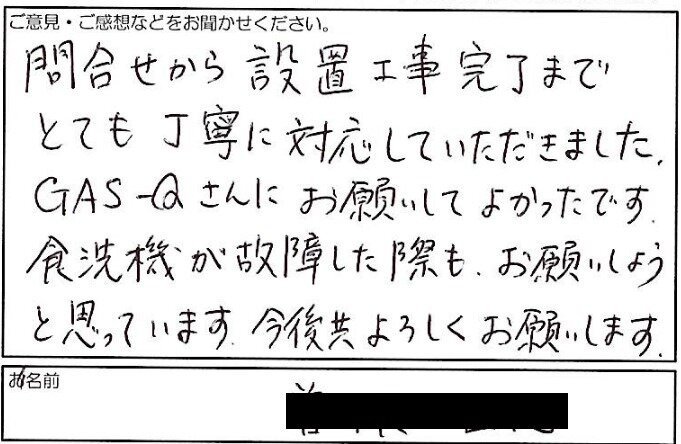 ご意見・ご感想などをお聞かせください。
問合せから設置工事完了まで
とても丁寧に対応していただきました。
GAS-Qさんにお願いしてよかったです。
食洗機が故障した際も、お願いしよう
と思っています。今後共よろしくお願いします。
お名前